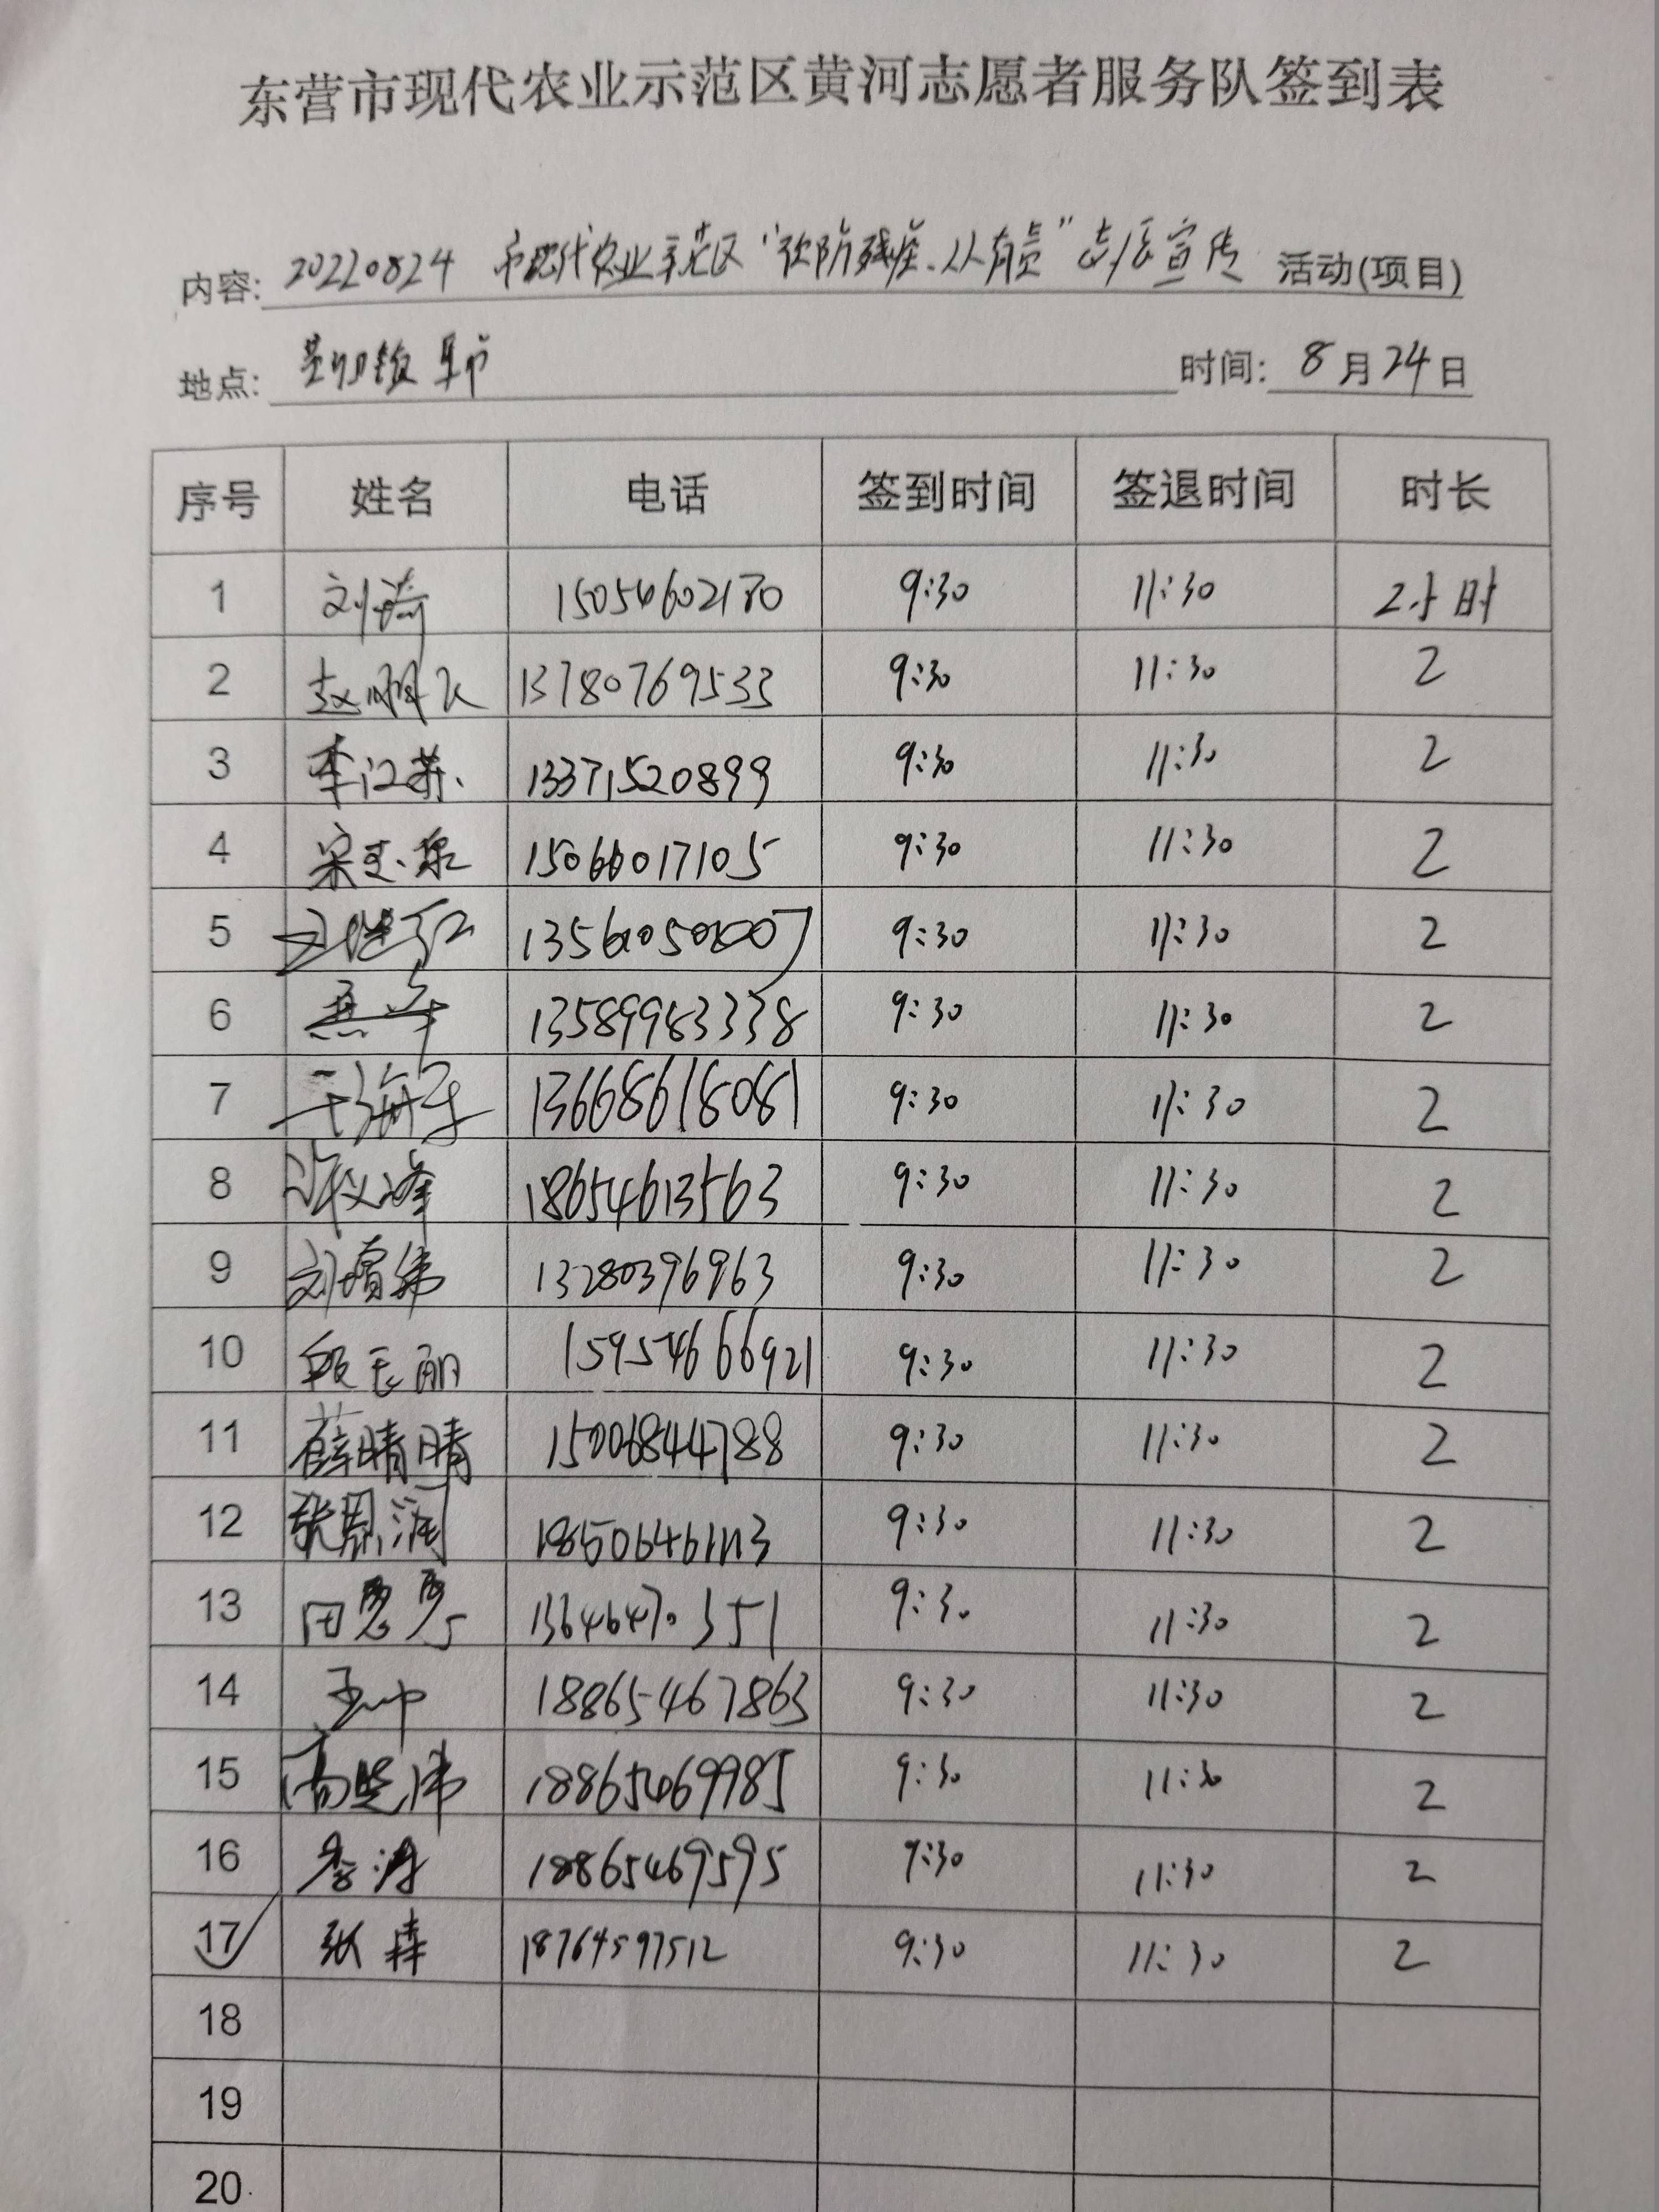 东营市现代农业示范区黄河志愿者服务队签到表
内容: 20220824 市现代农业示范区“预防残疾、人人有责”志愿宣传 活动(项目)
地点: 时间: 8月24日
序号 姓名 电话 签到时间 签退时间 时长
1 刘琦 15054602170 9:30 11:30 2小时
2 赵明飞 13780769533 9:30 11:30 2
3 李江苏 13371520899 9:30 11:30 2
4 宋玉泉 15066017105 9:30 11:30 2
5 9:30 11:30 2
6 燕军 13589983338 9:30 11:30 2
7 于海军 13668618081 9:30 11:30 2
8 许文峰 18654613563 9:30 11:30 2
9 刘增伟 13280396963 9:30 11:30 2
10 段玉丽 15954666921 9:30 11:30 2
11 薛晴晴 15006844788 9:30 11:30 2
12 张恩润 9:30 11:30 2
13 田 13646470351 9:30 11:30 2
14 王冲 18865467863 9:30 11:30 2
15 高 18865469985 9:30 11:30 2
16 李涛 18865469595 9:30 11:30 2
17 张森 18764597512 9:30 11:30 2
18
19
20